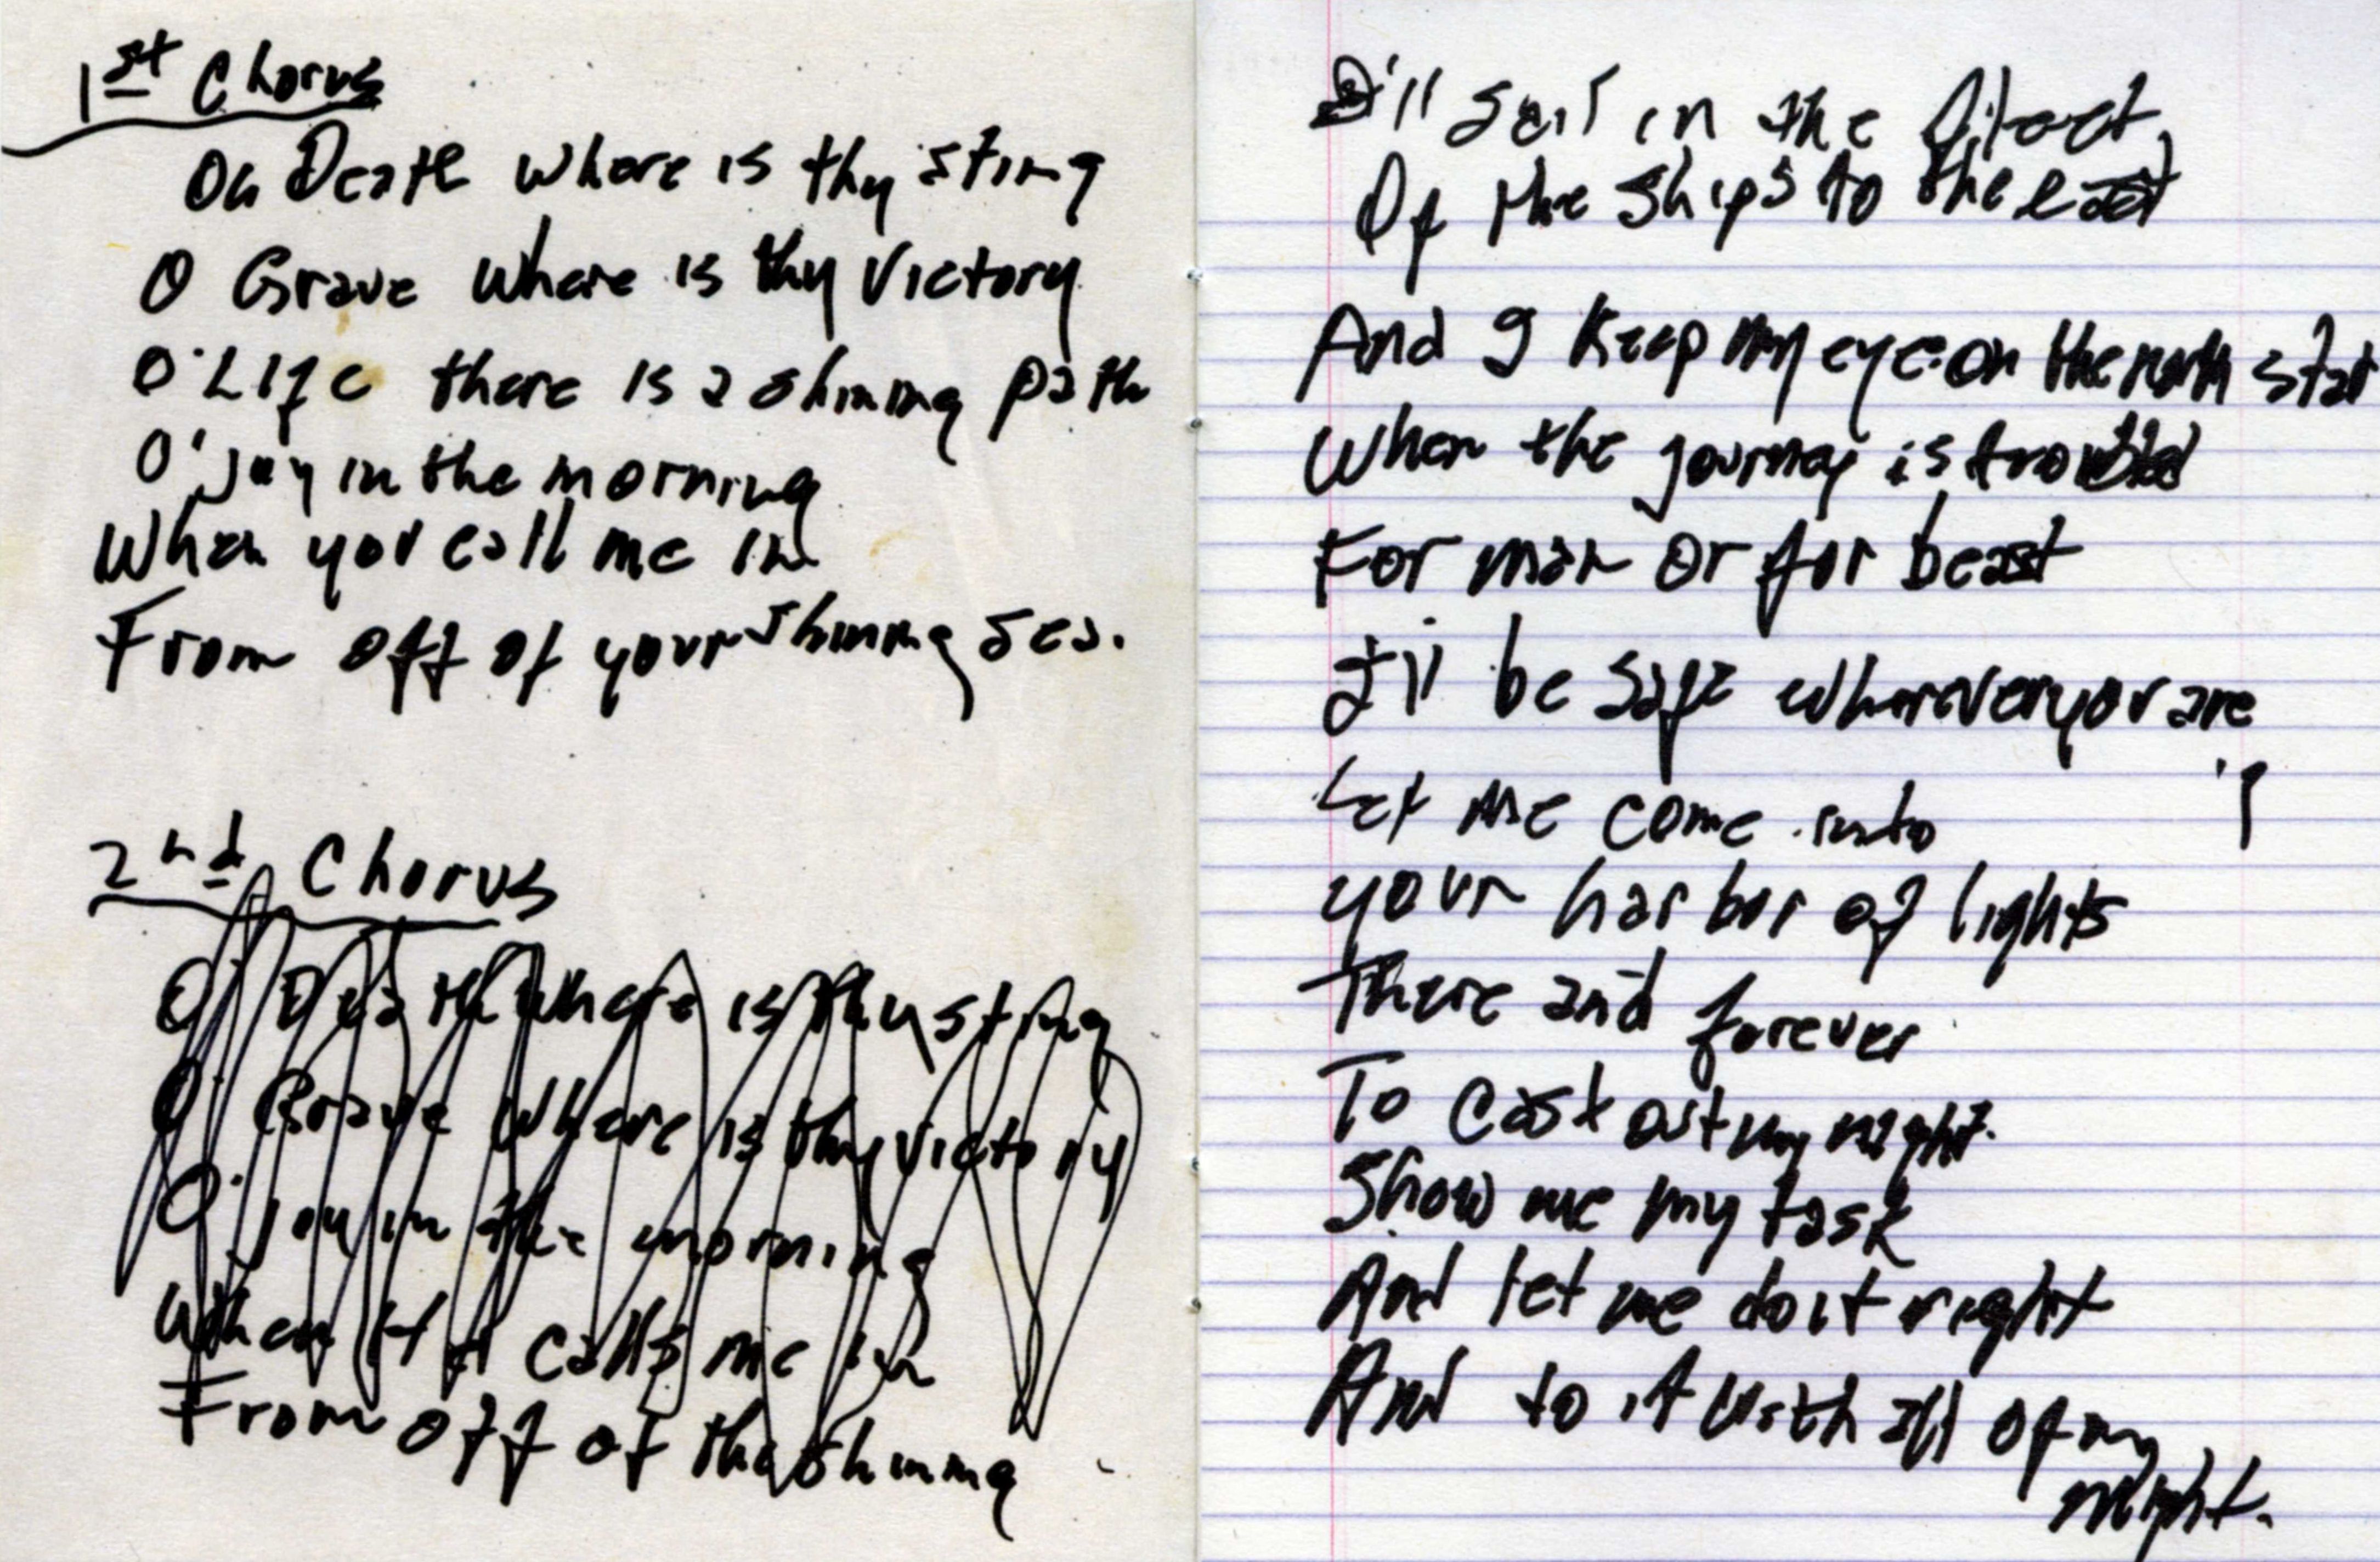 1st Chorus
Oh Death where is thy sting
O Grave where is thy Victory
O' Life there is a shining path
O' joy in the morning
When you call me in
From off of your shining sea.
2nd Chorus
O' Death where is thy sting
O' Grave where is thy victory
O' joy in the morning
When calls me in
From off of the shining
I'll sail in the
Of the ships to the east
And I keep my eye on the north star
When the journey is troubled
For man or for beast
I'll be safe wherever you are
Let me come into
your harbor of lights
There and forever
To cast out my night.
Show me my task
And let me do it right
And to it with all of my
might.